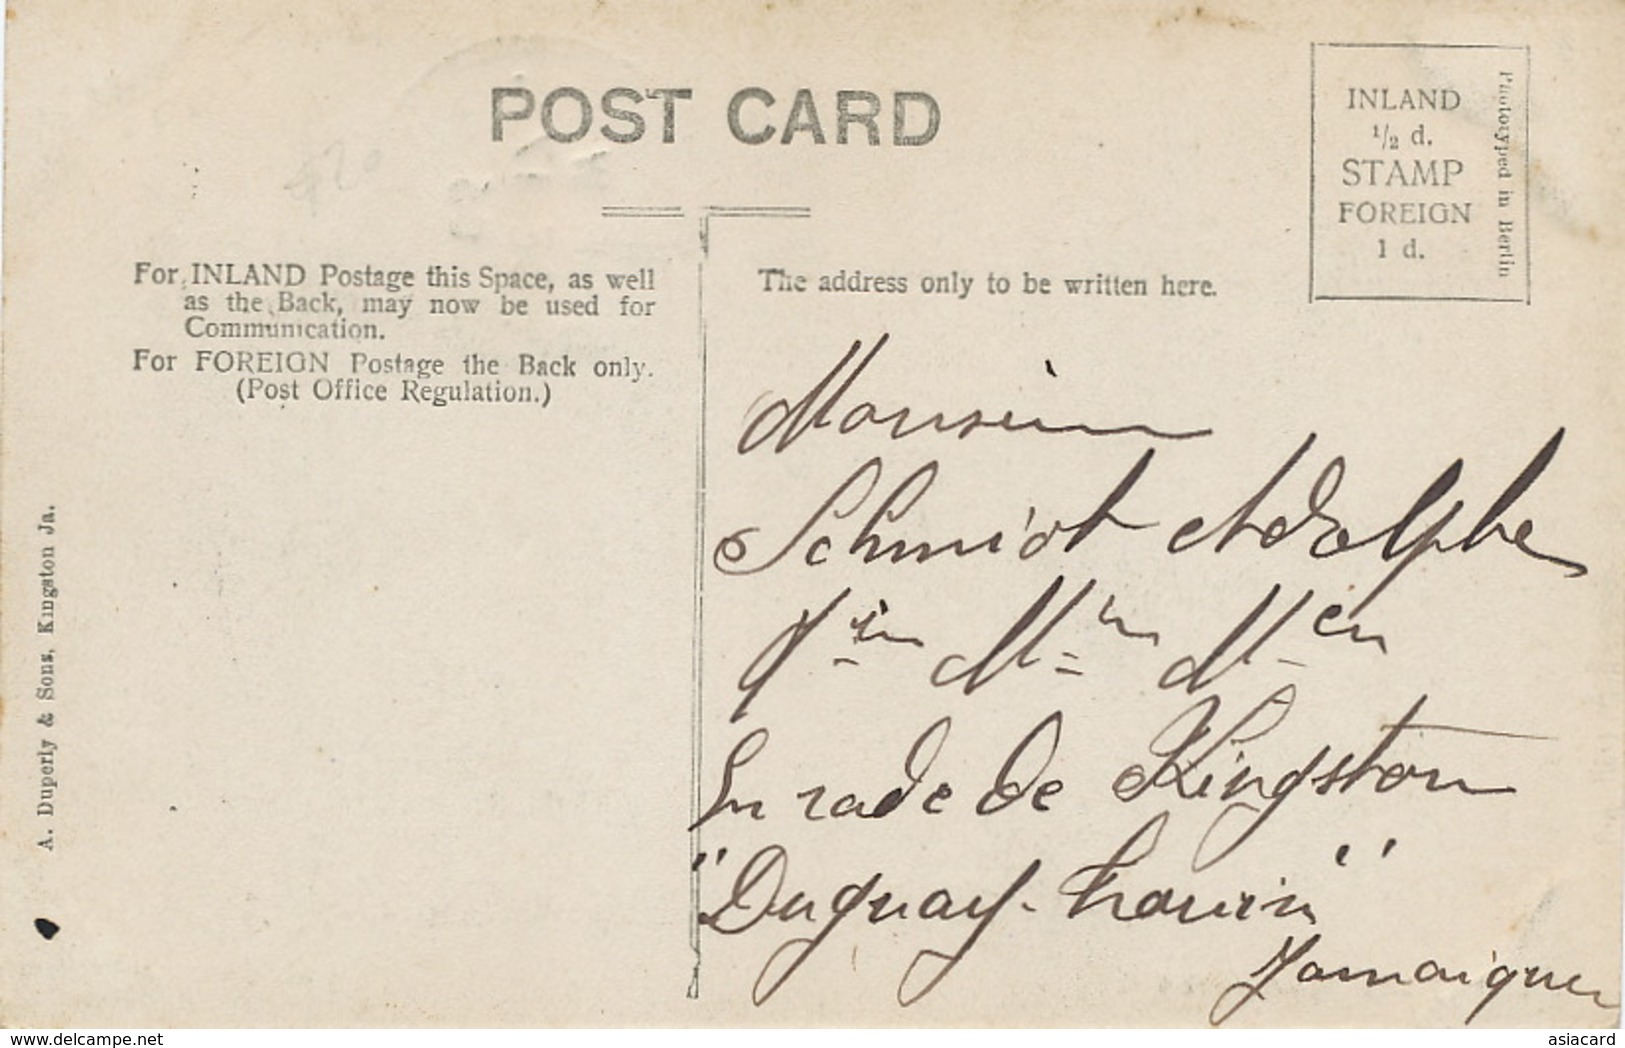 POST CARD
INLAND
1/2 d.
STAMP
FOREIGN
1 d.
Phototyped in Berlin
For INLAND Postage this Space, as well
as the Back, may now be used for
Communication.
For FOREIGN Postage the Back only.
(Post Office Regulation.)
The address only to be written here.
Monsieur
Schmidt Adolphe
En rade de Kingston
"Duguay-Trouin"
Jamaïque
A. Duperly & Sons, Kingston Ja.
delcampe.net
asiacard